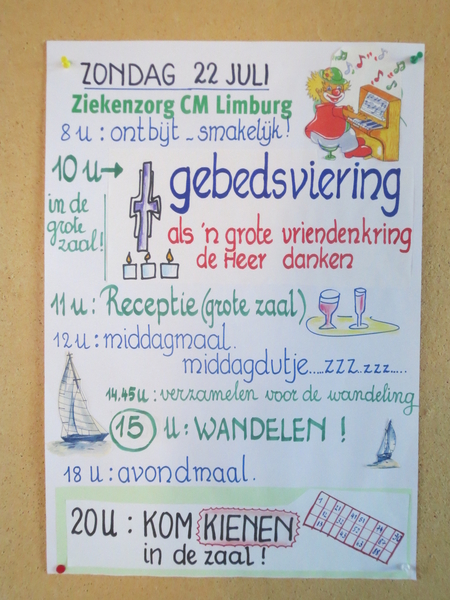 ZONDAG 22 JULI
Ziekenzorg CM Limburg
8 u : ontbijt - smakelijk!
10 u → gebedsviering
in de
grote
zaal!
als 'n grote vriendenkring
de Heer danken
11 u : Receptie (grote zaal)
12 u : middagmaal.
middagdutje.....zzz..zzz.....
14.45 u : verzamelen voor de wandeling
15 u : WANDELEN !
18 u : avondmaal.
20 u : KOM KIENEN
in de zaal !